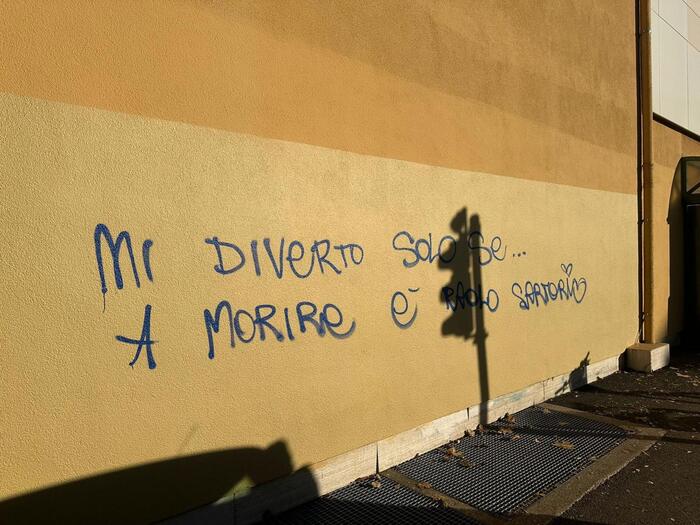 MI DIVERTO SOLO SE...
A MORIRE È PAOLO SARTORIN